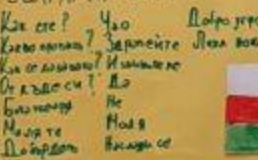 Как сте? Чао Добро утро
Какво правиш? Здравейте Лека нощ
Как се казваш? Извинете
От къде си? Да
Благодаря Не
Молете Моля
Добър ден Наслади се